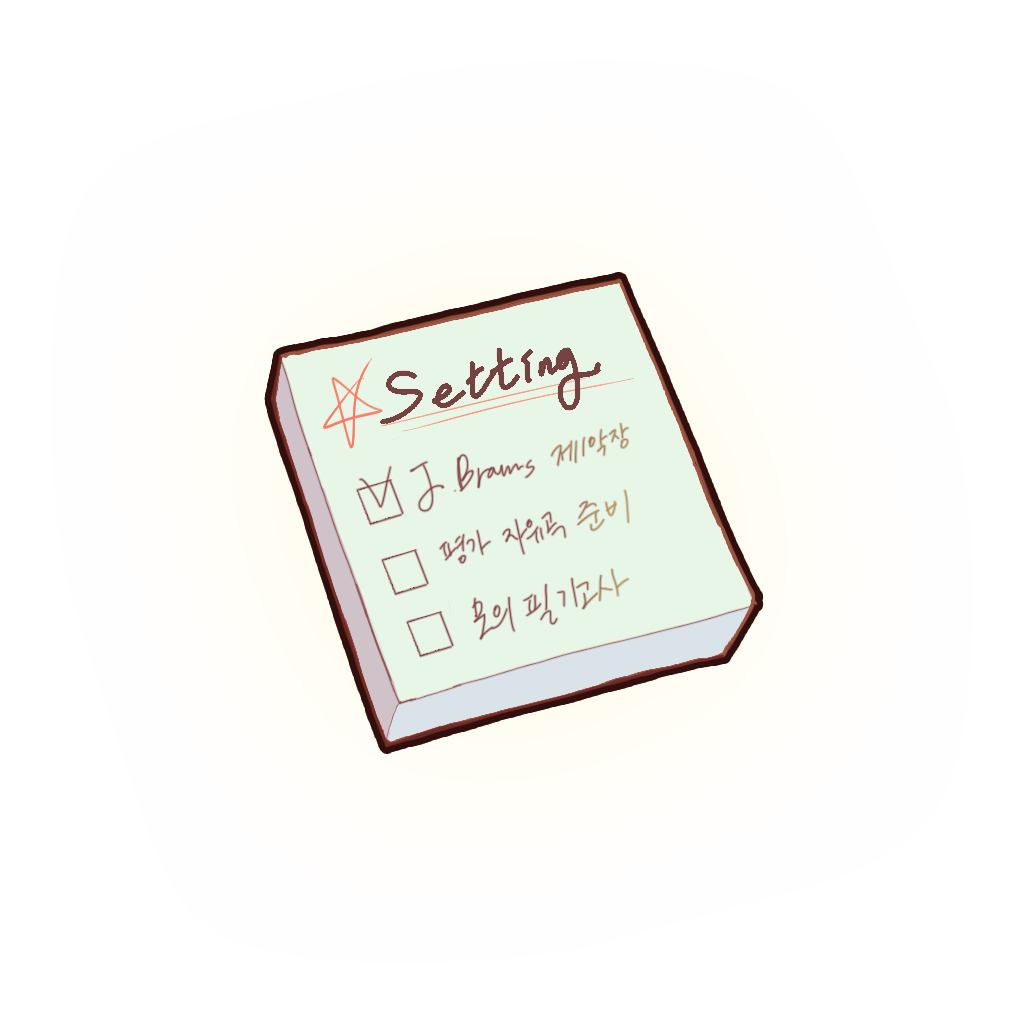 Setting
J. Brams 제1악장
평가 자유곡 준비
모의 필기고사